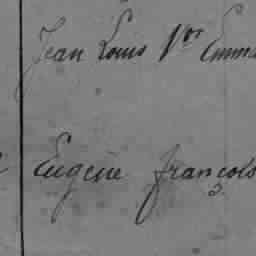 Jean Louis Vor Emma
Eugène françois